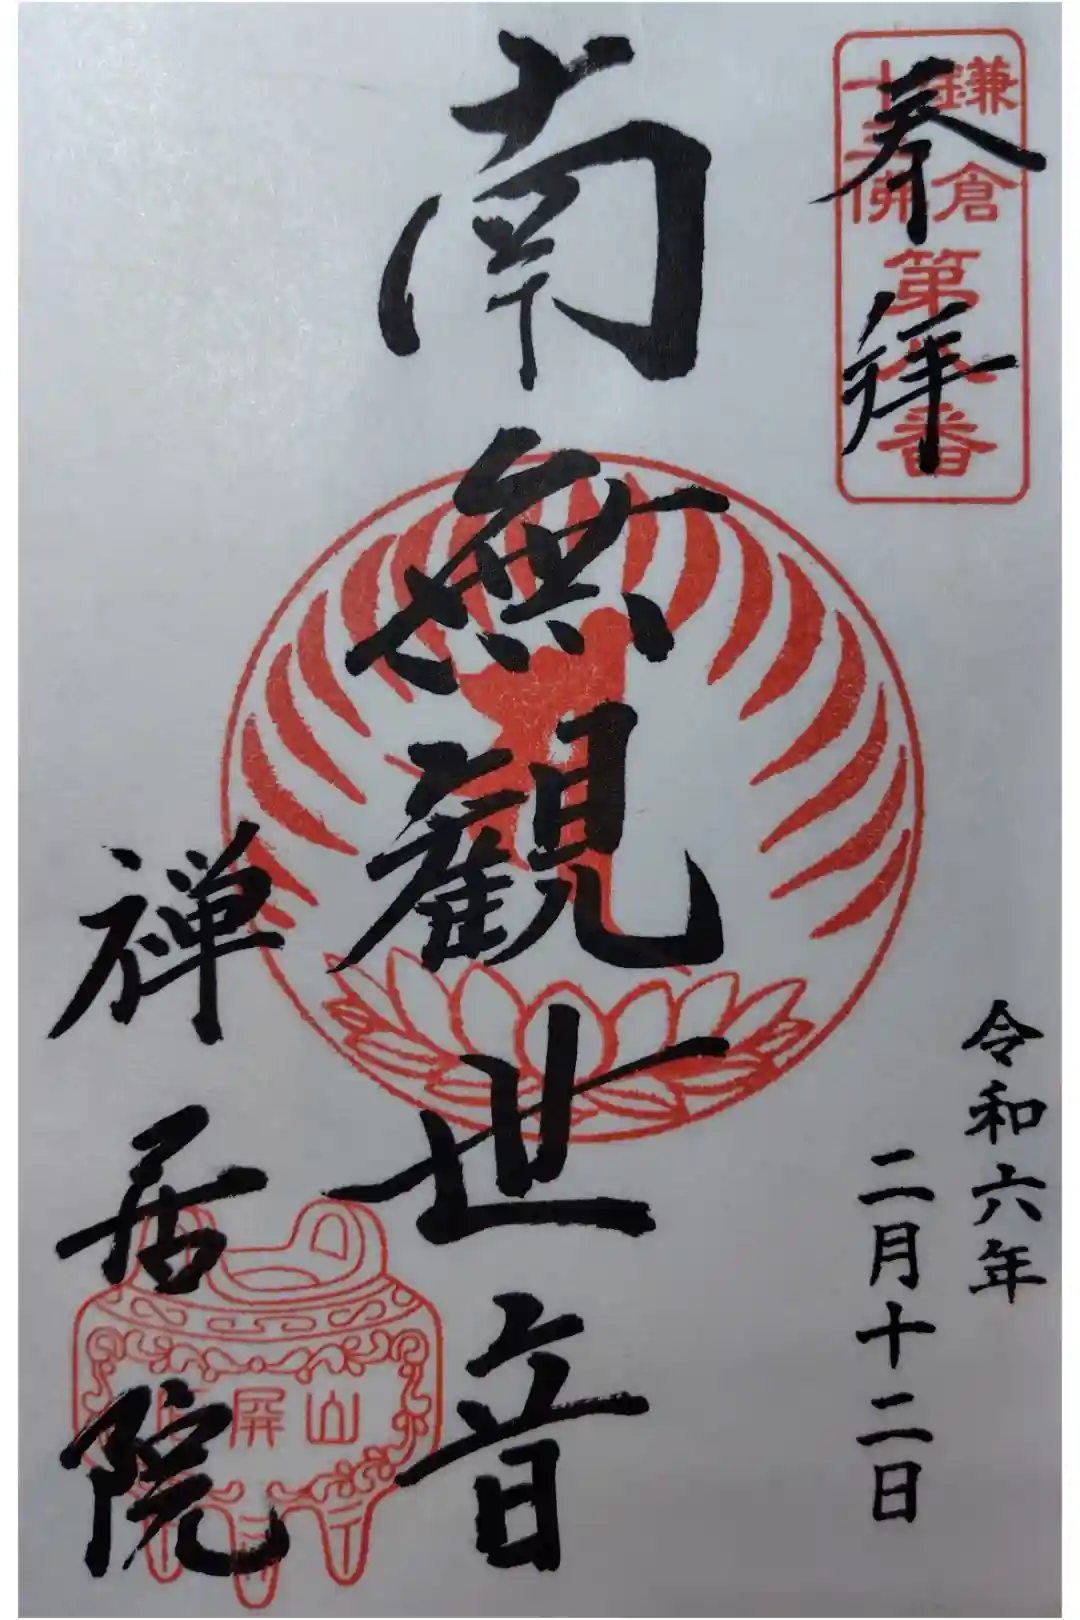 奉拝
鎌倉
十三佛
第八番
令和六年
二月十二日
南無觀世音
禅居院
山屏